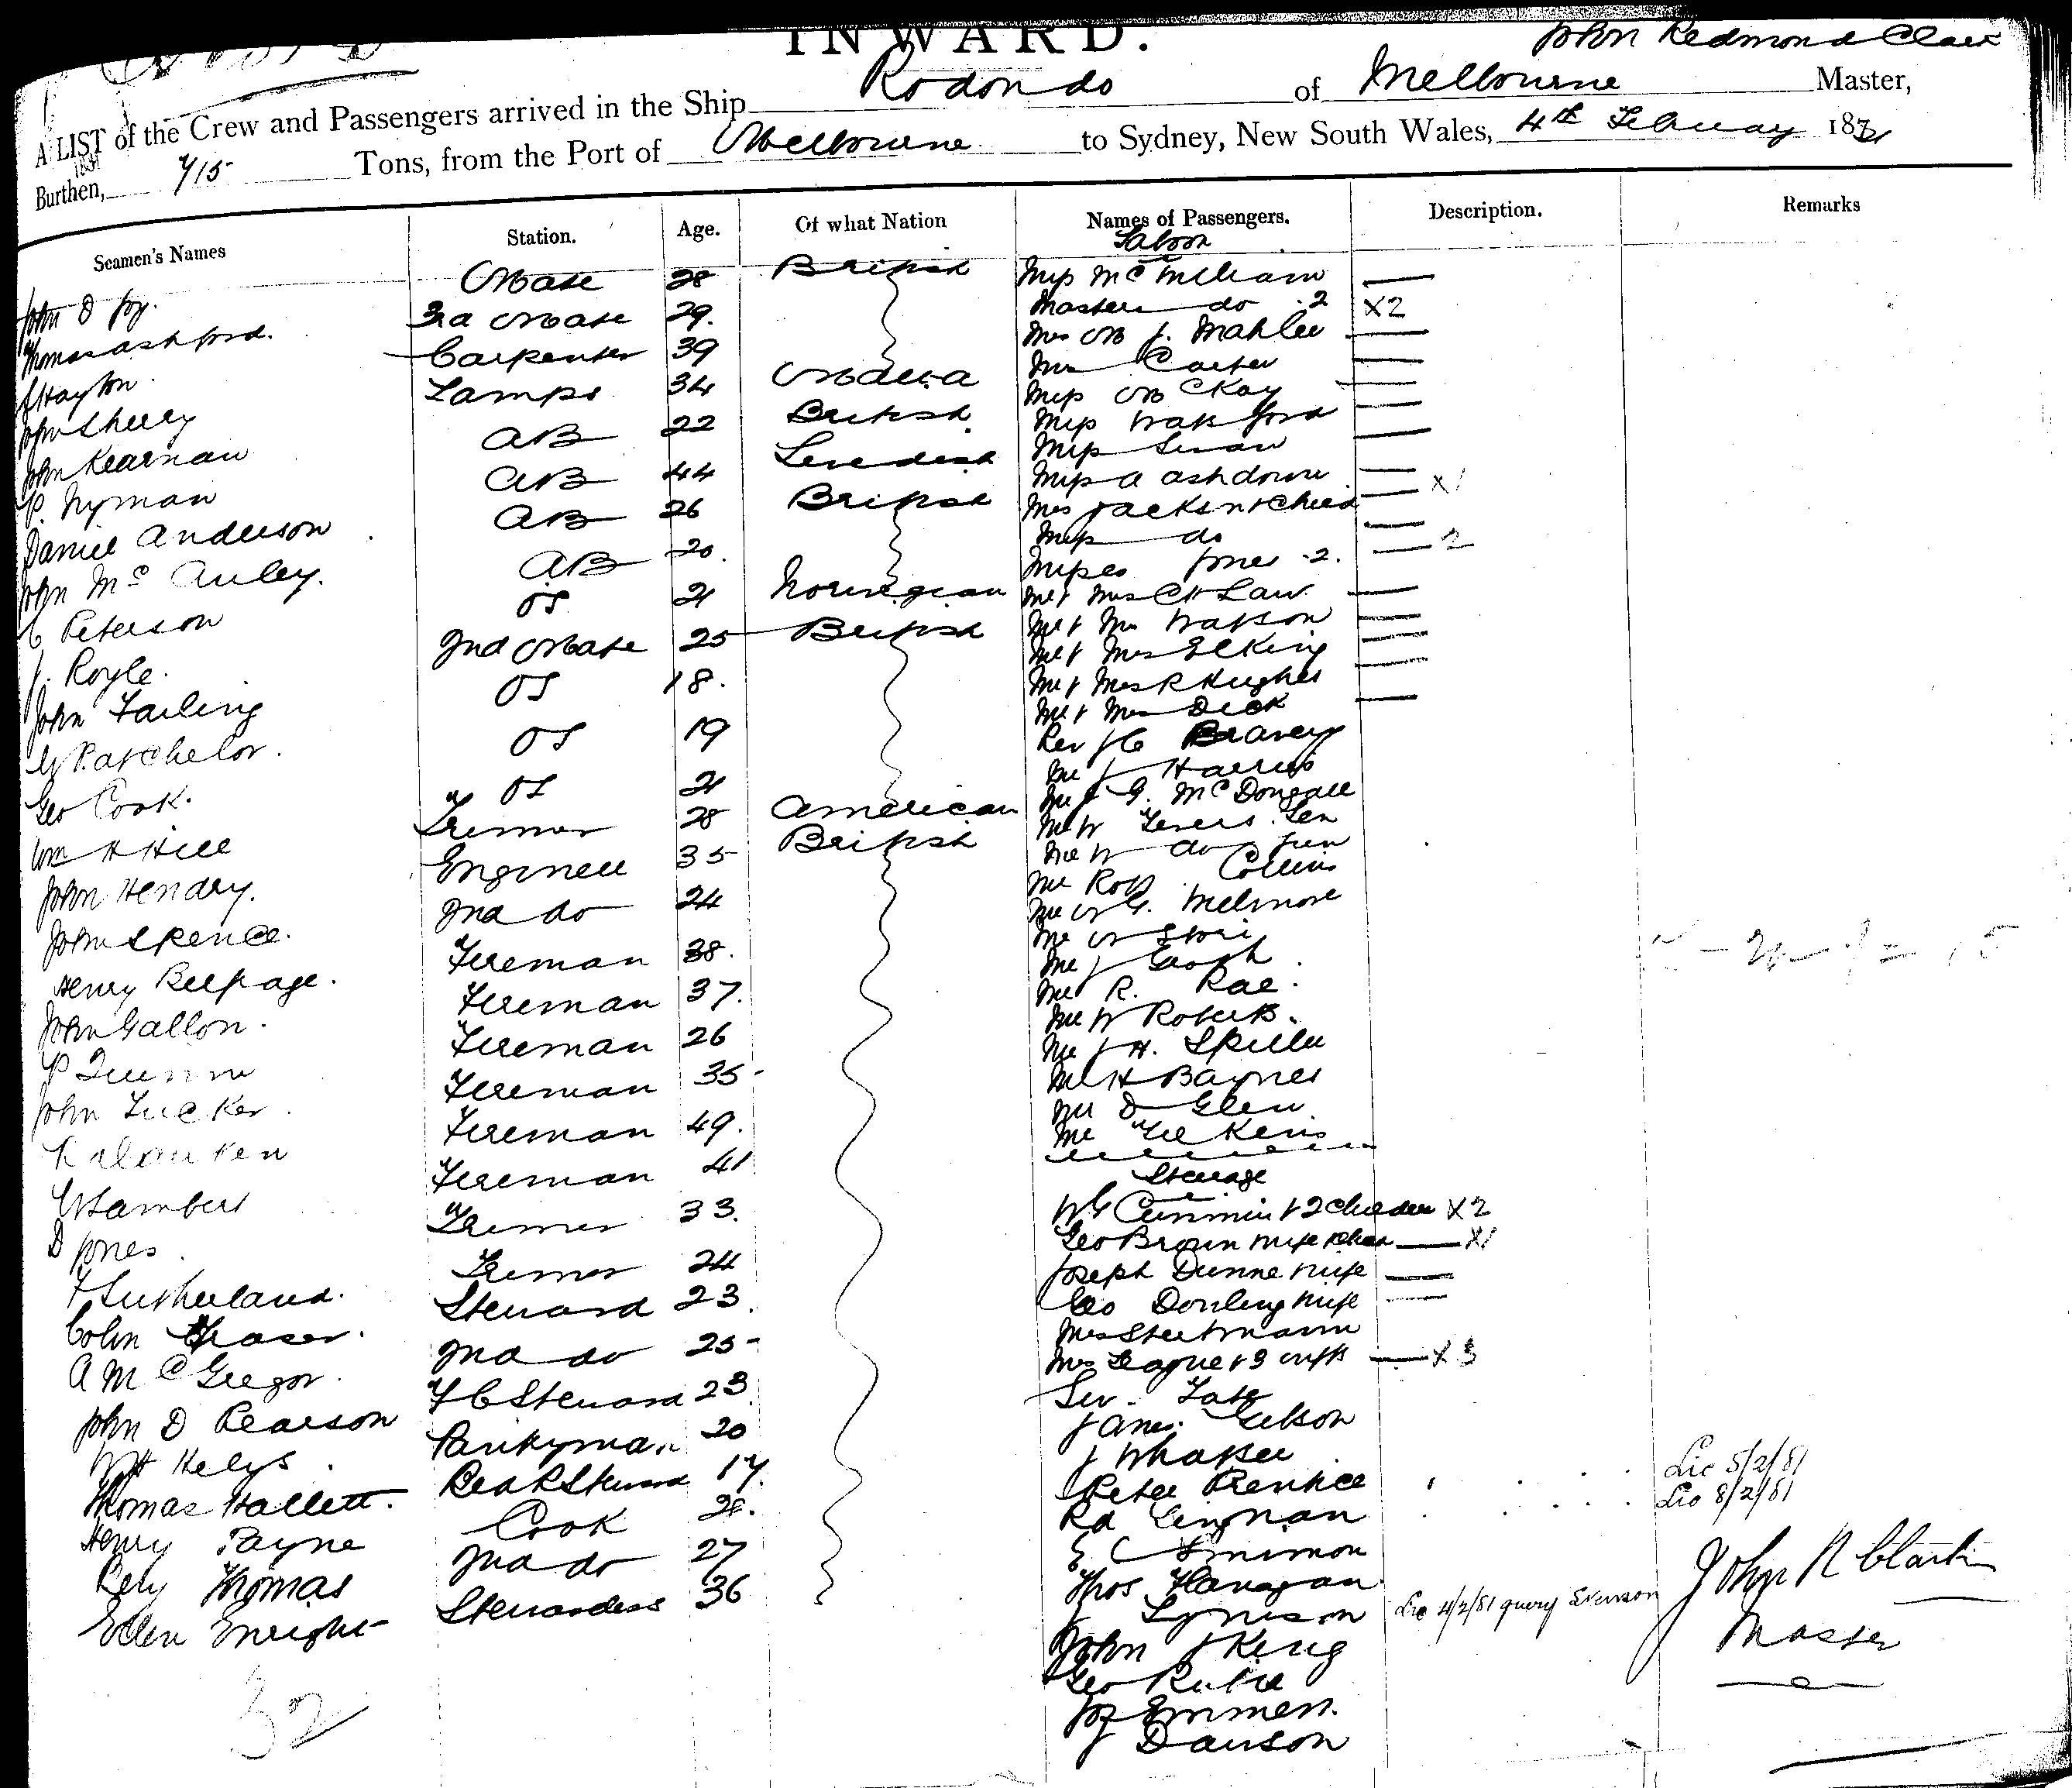 INWARD.
John Redmond Clark
A LIST of the Crew and Passengers arrived in the Ship Rodondo of Melbourne Master,
Burthen, 715 Tons, from the Port of Melbourne to Sydney, New South Wales, 4th February 1881
Seamen's Names Station. Age. Of what Nation Names of Passengers. Description. Remarks
Saloon
John D Joy. Mate 28 British
Thomas Ashford. 3rd Mate 29.
Hayton Carpenter 39
John Sheery Lamps 34
John Kearnan AB 22 British
P. Nyman AB 44 Swedish
Daniel Anderson AB 26 British
John McAuley. AB 20.
C Peterson OS 21 Norwegian
J. Royle. 2nd Mate 25 British
John Farling OS 18.
G Batchelor. OS 19
Geo Cook. OS 21
Wm H Hill Trimmer 28 American
John Hendry. Engineer 35 British
John Spence. 2nd do 24
Henry Fireman 38.
John Gallon. Fireman 37.
P Fireman 26
John Tucker. Fireman 35
Fireman 49.
Lambert Fireman 41
D Jones. Trimmer 33.
Sutherland. Trimmer 24
Colin Fraser. Steward 23.
A McGregor. 2nd do 25
John D Pearson F C Steward 23
WH Helys. Pantryman 20
Thomas Hallett. Steward 17.
Henry Payne Cook 28.
Thomas 2nd do 27
Ellen Enright Stewardess 36
32
Miss McMeham
Masters do 2 X2
Mrs Carter
Miss McKay
Miss Watsford
Miss Swan
Miss A Ashdown
Mrs Jackson & Child X1
Miss do
Misses Jones 2. 2
Mr & Mrs C H Law
Mr & Mrs Watson
Mr & Mrs E L King
Mr & Mrs R Hughes
Mr & Mrs Dick
Rev J C Bravery
Mr J Harris
Mr J G. McDougall
Mr W Severs Sen
Mr W do Jun
Mr Robt Collins
Mr W G. Melmore
Mr J Gooch
Mr R. Rae.
Mr W Roberts.
Mr J H. Spiller
Mr H Baynes
Mr D Glen
Mr
Steerage
W G Cummin & 2 children X2
Geo Brown wife & child X1
Joseph Dunne & wife
Geo Dowling & wife
Mrs
Mrs League & 3 infts X3
Tate
James Gibson
J Whaker
Peter Prentice
Lic 5/2/81
Rd
Lic 8/2/81
E C
Thos Flanagan
J Lic 4/2/81 query
John J King
Geo
Emmett.
J Dawson
John R Clark
Master